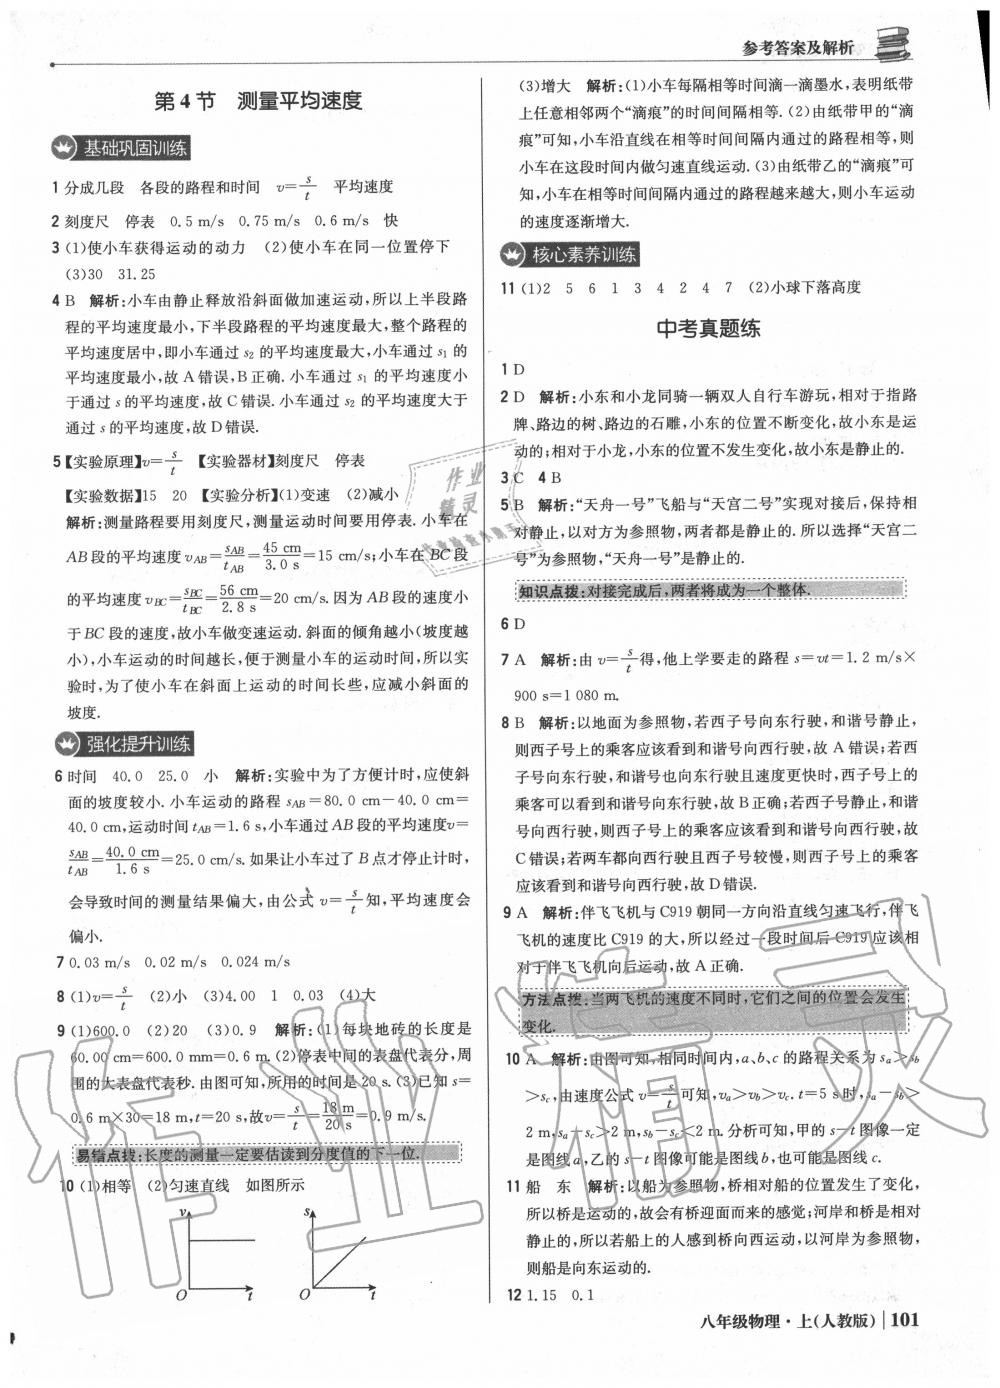 参考答案及解析
第4节 测量平均速度
基础巩固训练
1 分成几段 各段的路程和时间 v=s/t 平均速度
2 刻度尺 停表 0.5 m/s 0.75 m/s 0.6 m/s 快
3 (1)使小车获得运动的动力 (2)使小车在同一位置停下
(3)30 31.25
4 B 解析:小车由静止释放沿斜面做加速运动,所以上半段路
程的平均速度最小,下半段路程的平均速度最大,整个路程的
平均速度居中,即小车通过 s₂ 的平均速度最大,小车通过 s₁ 的
平均速度最小,故 A 错误,B 正确. 小车通过 s₁ 的平均速度小
于通过 s 的平均速度,故 C 错误. 小车通过 s₂ 的平均速度大于
通过 s 的平均速度,故 D 错误.
5【实验原理】v=s/t 【实验器材】刻度尺 停表
【实验数据】15 20 【实验分析】(1)变速 (2)减小
解析:测量路程要用刻度尺,测量运动时间要用停表. 小车在
AB 段的平均速度 v_AB=s_AB/t_AB=45 cm/3.0 s=15 cm/s;小车在 BC 段
的平均速度 v_BC=s_BC/t_BC=56 cm/2.8 s=20 cm/s. 因为 AB 段的速度小
于 BC 段的速度,故小车做变速运动. 斜面的倾角越小(坡度越
小),小车运动的时间越长,便于测量小车的运动时间,所以实
验时,为了使小车在斜面上运动的时间长些,应减小斜面的
坡度.
强化提升训练
6 时间 40.0 25.0 小 解析:实验中为了方便计时,应使斜
面的坡度较小. 小车运动的路程 s_AB=80.0 cm-40.0 cm=
40.0 cm,运动时间 t_AB=1.6 s,小车通过 AB 段的平均速度v=
s_AB/t_AB=40.0 cm/1.6 s=25.0 cm/s. 如果让小车过了 B 点才停止计时,
会导致时间的测量结果偏大,由公式 v=s/t知,平均速度会
偏小.
7 0.03 m/s 0.02 m/s 0.024 m/s
8 (1)v=s/t (2)小 (3)4.00 1 0.03 (4)大
9 (1)600.0 (2)20 (3)0.9 解析:(1)每块地砖的长度是
60.00 cm=600.0 mm=0.6 m. (2)停表中间的表盘代表分,周
围的大表盘代表秒. 由图可知,所用的时间是 20 s. (3)已知 s=
0.6 m×30=18 m,t=20 s,故v=s/t=18 m/20 s=0.9 m/s.
易错点拨:长度的测量一定要估读到分度值的下一位.
10 (1)相等 (2)匀速直线 如图所示
v
s
O t O t
(3)增大 解析:(1)小车每隔相等时间滴一滴墨水,表明纸带
上任意相邻两个“滴痕”的时间间隔相等. (2)由纸带甲的“滴
痕”可知,小车沿直线在相等时间间隔内通过的路程相等,则
小车在这段时间内做匀速直线运动. (3)由纸带乙的“滴痕”可
知,小车在相等时间间隔内通过的路程越来越大,则小车运动
的速度逐渐增大.
核心素养训练
11 (1)2 5 6 1 3 4 2 4 7 (2)小球下落高度
中考真题练
1 D
2 D 解析:小东和小龙同骑一辆双人自行车游玩,相对于指路
牌、路边的树、路边的石雕,小东的位置不断变化,故小东是运
动的;相对于小龙,小东的位置不发生变化,故小东是静止的.
3 C 4 B
5 B 解析:“天舟一号”飞船与“天宫二号”实现对接后,保持相
对静止,以对方为参照物,两者都是静止的. 所以选择“天宫二
号”为参照物,“天舟一号”是静止的.
知识点拨:对接完成后,两者将成为一个整体.
6 D
7 A 解析:由 v=s/t得,他上学要走的路程 s=vt=1.2 m/s×
900 s=1 080 m.
8 B 解析:以地面为参照物,若西子号向东行驶,和谐号静止,
则西子号上的乘客应该看到和谐号向西行驶,故 A 错误;若西
子号向东行驶,和谐号也向东行驶且速度更快时,西子号上的
乘客可以看到和谐号向东行驶,故 B 正确;若西子号静止,和谐
号向西行驶,则西子号上的乘客应该看到和谐号向西行驶,故
C 错误;若两车都向西行驶且西子号较慢,则西子号上的乘客
应该看到和谐号向西行驶,故 D 错误.
9 A 解析:伴飞飞机与 C919 朝同一方向沿直线匀速飞行,伴飞
飞机的速度比 C919 的大,所以经过一段时间后 C919 应该相
对于伴飞飞机向后运动,故 A 正确.
方法点拨:当两飞机的速度不同时,它们之间的位置会发生
变化.
10 A 解析:由图可知,相同时间内,a、b、c 的路程关系为 s_a>s_b
>s_c,由速度公式 v=s/t可知,v_a>v_b>v_c. t=5 s 时,s_a-s_b>
2 m,s_a-s_c>2 m,s_b-s_c<2 m. 分析可知,甲的 s-t 图像一定
是图线 a,乙的 s-t 图像可能是图线 b,也可能是图线 c.
11 船 东 解析:以船为参照物,桥相对船的位置发生了变化,
所以桥是运动的,故会有桥迎面而来的感觉;河岸和桥是相对
静止的,所以若船上的人感到桥向西运动,以河岸为参照物,
则船是向东运动的.
12 1.15 0.1
八年级物理·上(人教版) 101
作业精灵